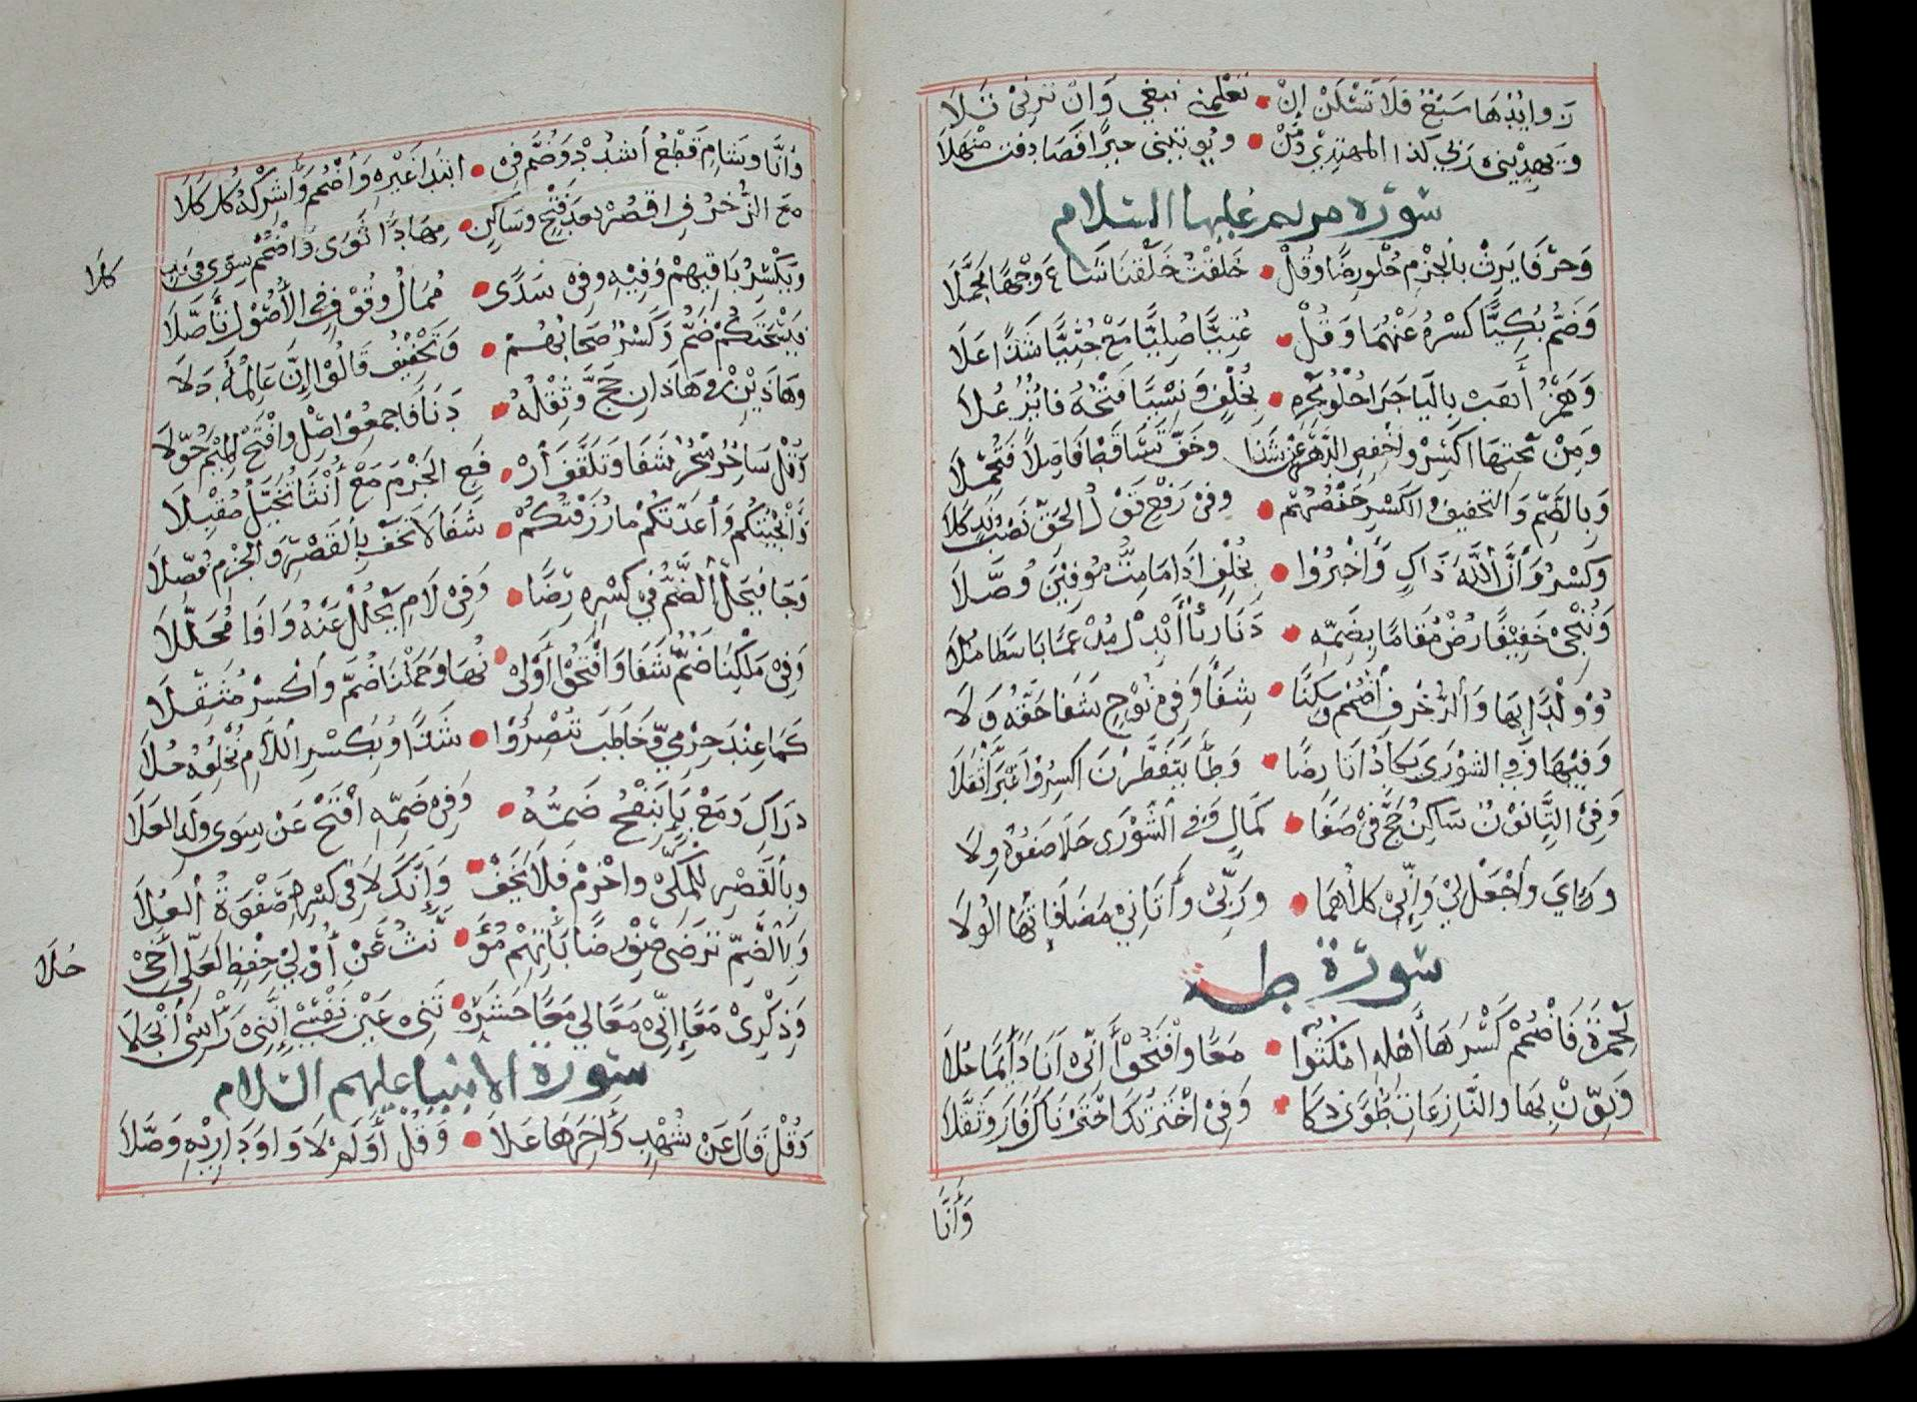 زوايدها سبع فلا تسكن إن • تعلمني نبغي وإن ترني تلا
ويهديني ربي كذا المهتدي ومن • ويوتيني خيرا فصادفت منهلا
سورة مريم عليها السلام
وحرفا يرث بالجزم حلو رضا وقل • خلقت خلقنا شاع وجها مجملا
وضم بكيا كسره عنهما وقل • عتيا صليا مع جثيا شذا علا
وهمز أهب باليا جرا حلو بحره • بخلف ونسيا فتحه فائز علا
ومن تحتها اكسر واخفض الدهر عن شذا وخف تساقط فاصلا فتحملا
وبالضم والتخفيف والكسر حفصهم • وفي رفع قول الحق نصب ند كلا
وكسر وأن الله ذاك وأخبروا • بخلف إذا ما مت موفين وصلا
وننجي خفيفا رض مقاما بضمه • دنا رئيا أبدل مدغما باسطا ملا
وولدا بها والزخرف أضمم وسكنا • شفاء وفي نوح شفا حقه ولا
وفيها وفي الشورى يكاد أتا رضا • وطا يتفطرن اكسروا غير أثقلا
وفي التا نون ساكن حج في صفا • كمال وفي الشورى حلا صفوه ولا
وراي واجعل لي وإني كلاهما • وربي وأتاني مضافاتها الولا
سورة طه
لحمزة فاضمم كسر ها أهله امكثوا • معا وافتحوا أني أنا دائما حلا
ونون بها والنازعات طوى ذكا • وفي اخترتك اخترناك فاز وثقلا
وأنا
وأنا وشام قطع أشدد وضم في • ابتدا غيره وأضمم وأشركه كلكلا
مع الزخرف اقصر بعد فتح وساكن • مهادا ثوى واضمم سوى في ند
كلا
ويكسر باقيهم وفيه وفي سدى • ممال وقوف في الأصول تأصلا
فيسحتكم ضم وكسر صحابهم • وتخفيف قالوا إن عالمه دلا
وهاذين في هاذان حج وثقله • دنا فاجمعوا صل وافتح الميم حولا
وقل ساحر سحر شفا وتلقف أر • فع الجزم مع أنثى تخيل مقبلا
وأنجيتكم وأعدتكم ما رزقتكم • شفا لا تخف بالقصر والجزم فصلا
وحا فيحل الضم في كسره رضا • وفي لام يحلل عنه وافا محللا
وفي ملكنا ضم شفا وافتحوا أولي • نها وحملنا ضم واكسر مثقلا
كما عند حرمي وخاطب تبصروا • شذا وبكسر اللام تخلفه حلا
دراك ومع ياء بننفخ ضمه • وفي ضمه افتح عن سوى ولد العلا
وبالقصر للمكي واجزم فلا يخف • وإنك لا في كسره صفوة العلا
وبالضم ترضى صف رضا يأتهم مؤ • نث عن أولي حفظ لعلي أخي
حلا
وذكري معا إني معا لي معا حشر • تني عين نفسي إنني رأسي انجلا
سورة الانبيا عليهم السلام
وقل قال عن شهد وأخرها علا • وقل أولم لا واو داريه وصلا